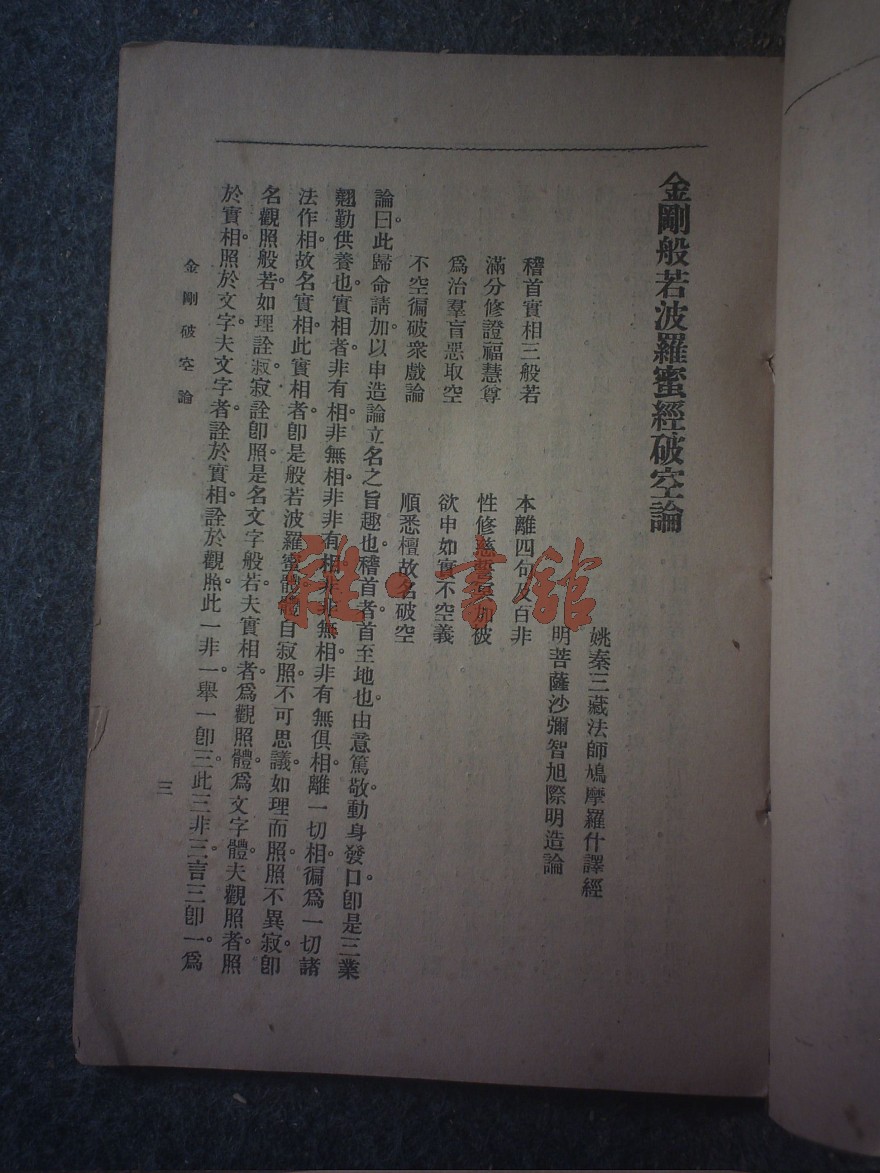 金剛般若波羅蜜經破空論
姚秦三藏法師鳩摩羅什譯經
明菩薩沙彌智旭際明造論
稽首實相三般若　本離四句及百非
滿分修證福慧尊　性修慈誓垂加被
爲治羣盲惡取空　欲申如實不空義
不空徧破衆戲論　順悉檀故名破空
論曰。此歸命請加。以申造論立名之旨趣也。稽首者。首至地也。由意篤敬。動身發口。卽是三業
翹勤供養也。實相者。非有相。非無相。非非有相。非非無相。非有無俱相。離一切相。徧爲一切諸
法作相。故名實相。此實相者。卽是般若波羅蜜體。體自寂照。不可思議。如理而照。照不異寂。卽
名觀照般若。如理詮寂。寂詮卽照。是名文字般若。夫實相者。爲觀照體。爲文字體。夫觀照者。照
於實相。照於文字。夫文字者。詮於實相。詮於觀照。此一非一。舉一卽三。此三非三。言三卽一。爲
金剛破空論
三
雜·書館